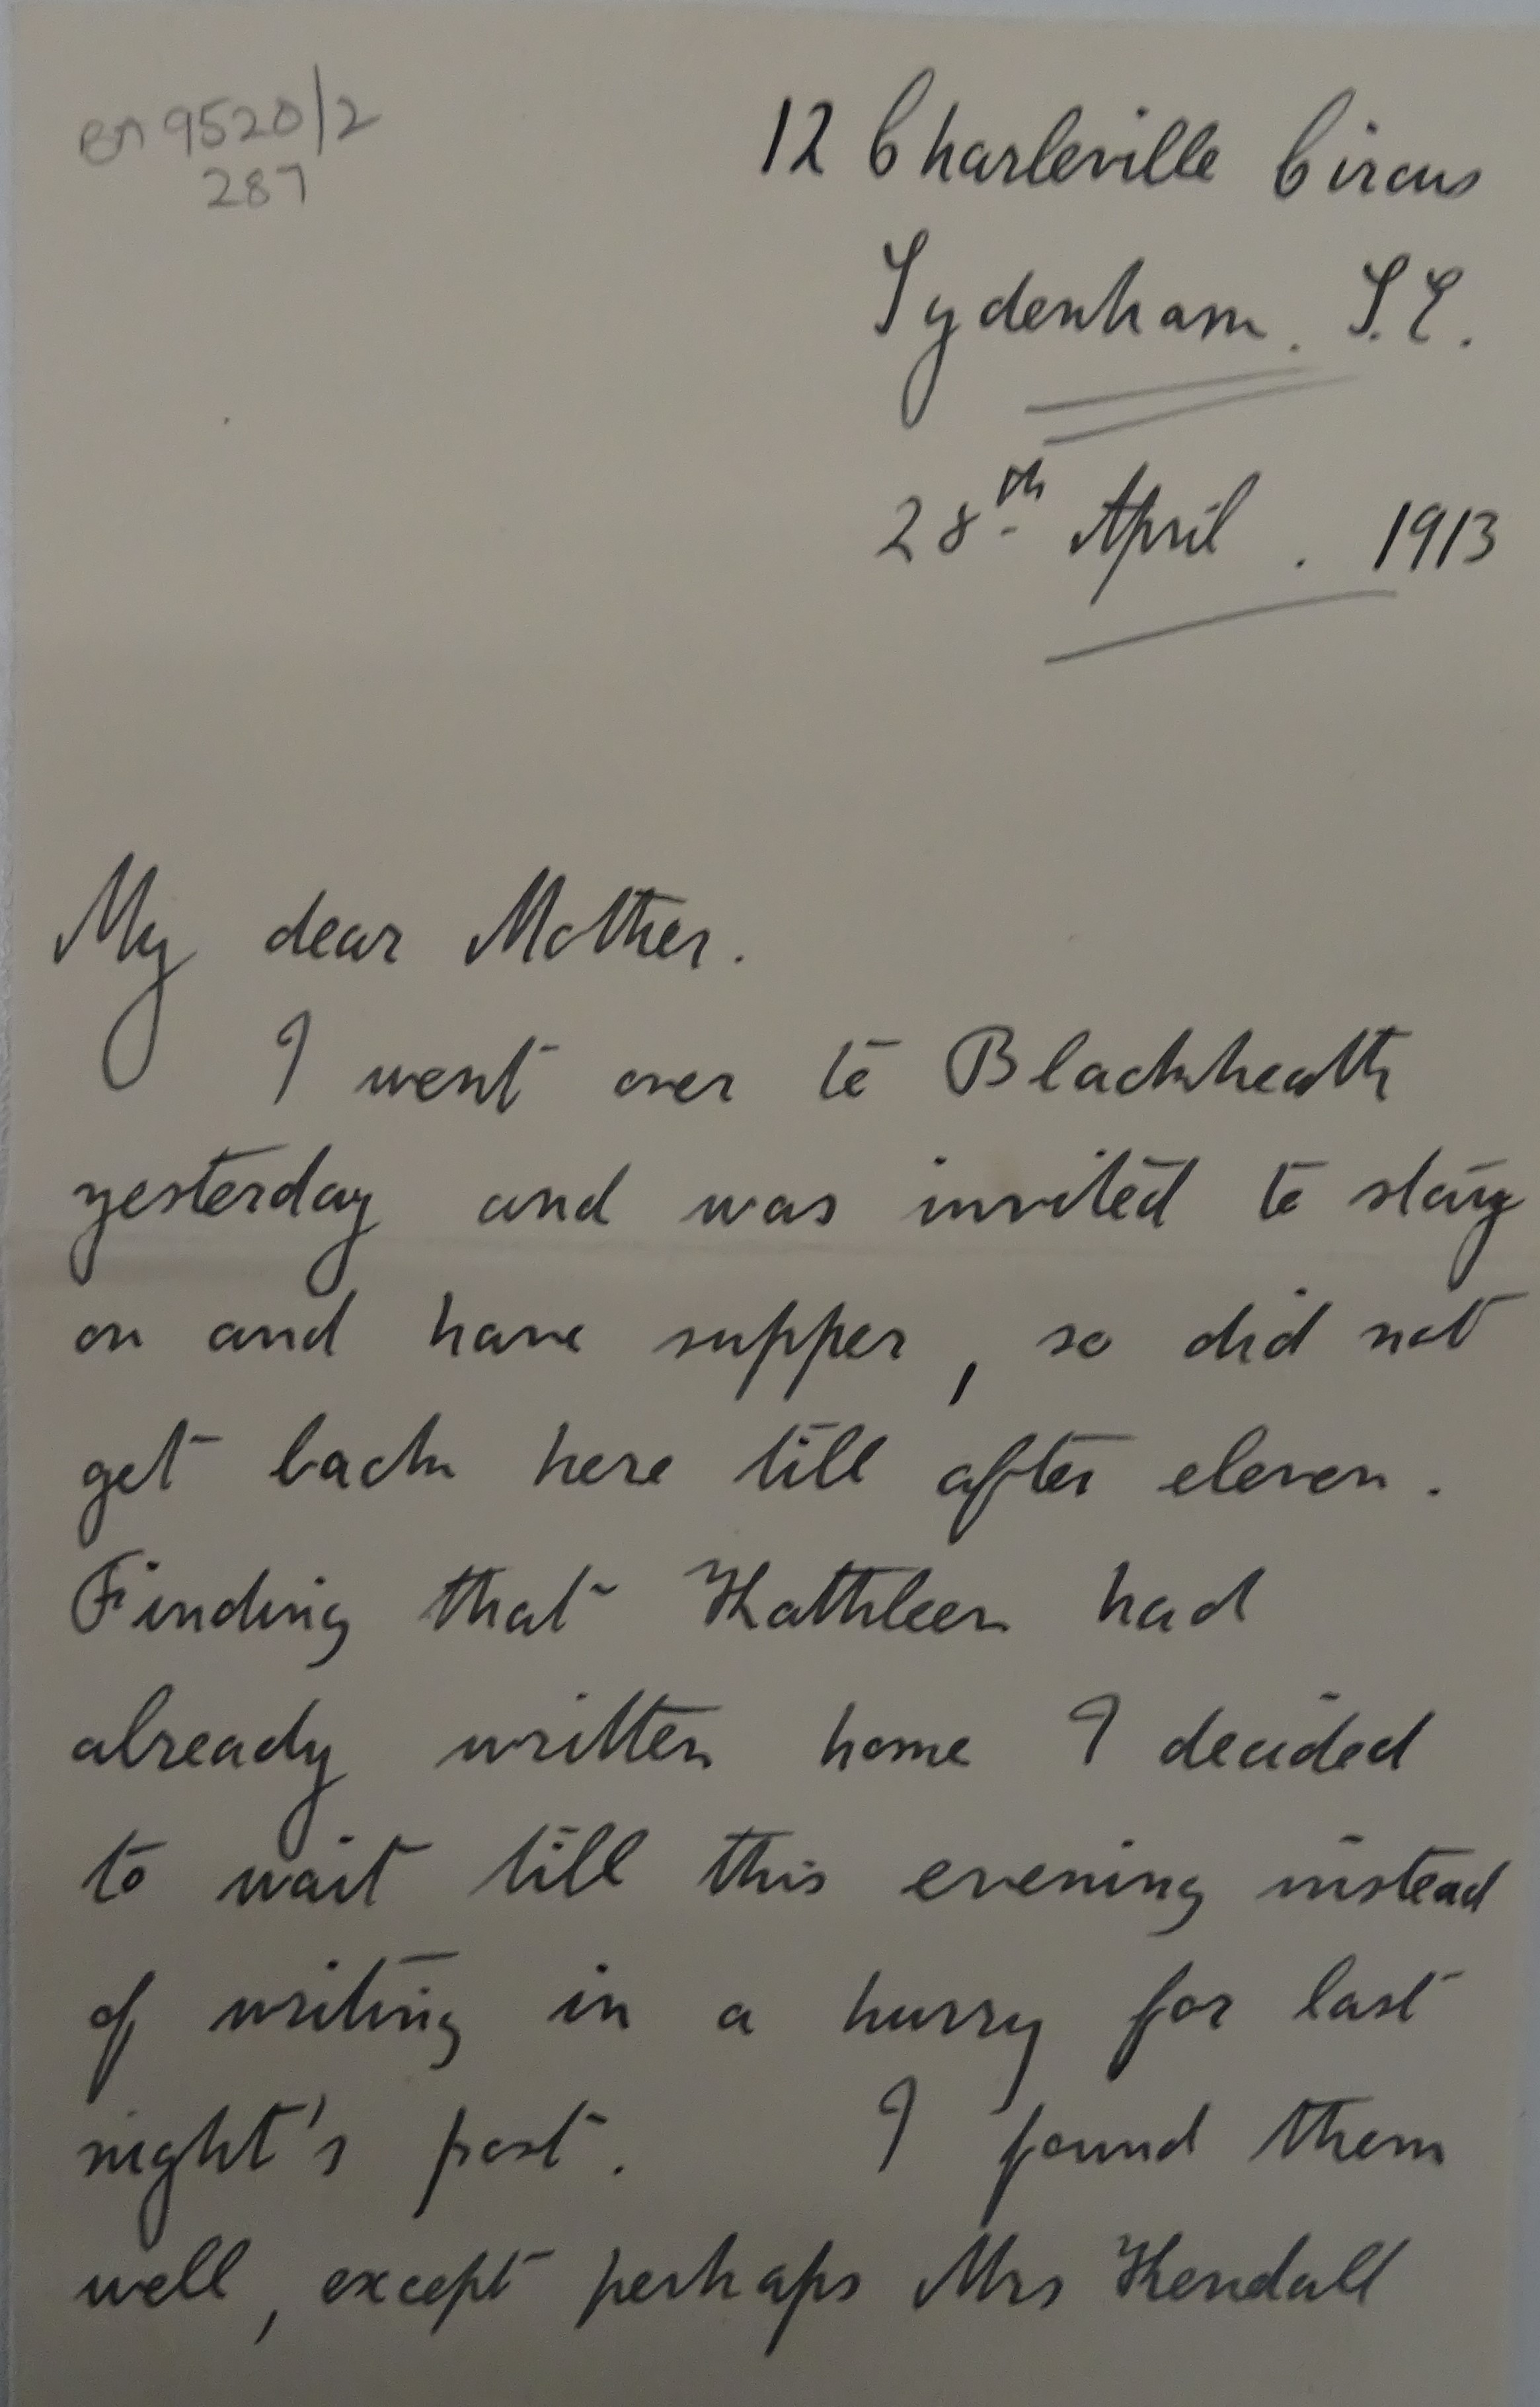 en 9520/2
287
12 Charleville Circus
Sydenham. S.E.
28th April. 1913
My dear Mother.
I went over to Blackheath
yesterday and was invited to stay
on and have supper, so did not
get back here till after eleven.
Finding that Kathleen had
already written home I decided
to wait till this evening instead
of writing in a hurry for last
night's post. I found them
well, except perhaps Mrs Kendall